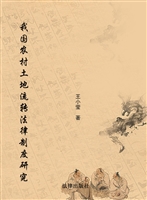 我国农村土地流转法律制度研究
王小莹 著
法律出版社